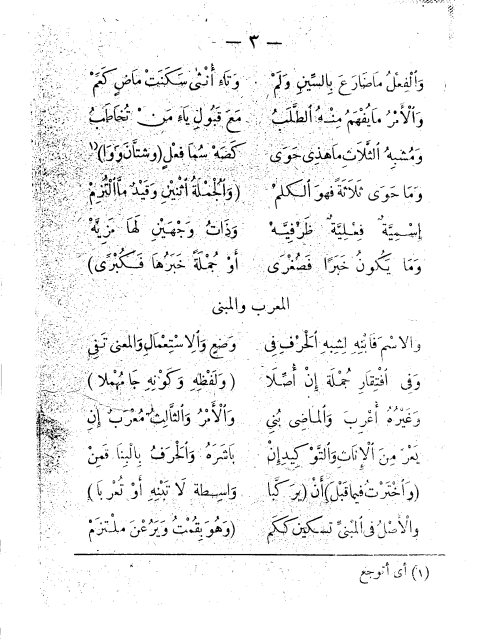 — ٣ —
وَالْفِعْلُ مَا ضَارَعَ بِالسِّينِ وَلَمْ وَتَاءِ أُنْثَى سَكَنَتْ مَاضٍ كَعَمْ
وَالْأَمْرُ مَا يُفْهَمُ مِنْهُ الطَّلَبُ مَعَ قَبُولِ يَاءِ مَنْ تُخَاطَبُ
وَمُشْبِهُ الثَّلَاثِ مَا هَذِي حَوَى كَصَهْ سُمَا فِعْلٍ (وَشَتَّانَ وَوَا) (١
وَمَا حَوَى ثَلَاثَةً فَهُوَ الْكَلِمْ (وَالْجُمْلَةُ اثْنَيْنِ وَقَيْدٌ مَّا الْتُزِمْ
إِسْمِيَّةٌ فِعْلِيَّةٌ ظَرْفِيَّهْ وَذَاتُ وَجْهَيْنِ لَهَا مَزِيَّهْ
وَمَا يَكُونُ خَبَرًا فَصُغْرَى أَوْ جُمْلَةٌ خَبَرُهَا فَكُبْرَى)
المعرب والمبنى
وَالِاسْمَ فَابْنِهِ لِشِبْهِ الْحَرْفِ فِى وَضْعٍ وَالِاسْتِعْمَالِ وَالْمَعْنَى تَفِى
وَفِى افْتِقَارِ جُمْلَةٍ إِنْ أُصِّلَا (وَلَفْظِهِ وَكَوْنِهِ جَا مُهْمَلَا)
وَغَيْرُهُ أُعْرِبَ وَالْمَاضِى بُنِى وَالْأَمْرُ وَالثَّالِثُ مُعْرَبٌ إِنِ
يَعْرَ مِنَ الْإِنَاثِ وَالتَّوْكِيدِ إِنْ بَاشَرَهُ وَالْحَرْفُ بِالْبِنَا قَمِنْ
(وَاخْتَرْتُ فِيمَا قَبْلَ) أَنْ (يُرَكَّبَا وَاسِطَةً لَا تَبْنِهِ أَوْ تُعْرِبَا)
وَالْأَصْلُ فِى الْمَبْنِىِّ تَسْكِينٌ كَكَمِ (وَهُوَ بِقُمْتُ وَيَرُعْنَ مُلْتَزَمْ
(١) أى أتوجع